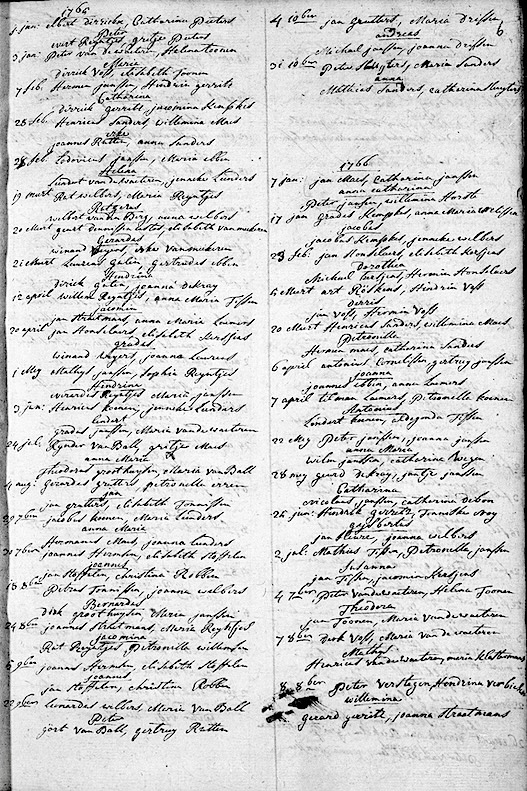 1765
1 jan: elbert dirricks, Catharina Peeters
Peter
evert Reyntjes, gritje Peeters
3 jan: Peter van de waeteren, Helena toonen
Maria
Dirrick Voss, elisabeth Toonen
7 feb. Hermen janssen, Hindrin gerrits
Catharina
dirrick gerrits, jacomina Kempkes
28 feb. Henricus Sanders, willemina Maes
joannes Rutten, anna Sanders
28 feb. Lodovicus janssen, Maria ebben
Helena
Lendert van de waeteren, jenneke Lenders
19 mart Rut wilbers, Maria Reyntjes
Rutgerus
wilbert van den Berg, nenna wilbers
20 Mert geert elisabeth van
Gerardus
winand
21 Mert Laurens Galen, Gertrudes ebben
Hendrina
Dirick Galen, joanna dekray
12 april willem Reyntjes, anna Maria Tissen
jacomin
jan Straatmans, anna Maria Lamers
20 april jan Honselaers, elisabeth Kersjes
gradus
winand Angers, joanna Laurens
1 Mey Mathys janssen, Sophia Reyntjes
Hendrina
everardus Reyntjes, Maria janssen
3 jun: Henricus koenen, jenneke Lenders
Lendert
gradus janssen, Maria van de waeteren
24 jul. Rynder van Ball, gritje Maes
anna Maria
Theodorus groothuysen, Maria van Ball
4 aug: Gerardus gratters, petronella
jan
jan gratters, elisabeth Tonnissen
29 7ber jacobus koenen, Maria Lenders
anna Maria
Hermanus Maes, joanna Lenders
30 7ber joannes Hermsen, elisabeth Stoffelen
joannes
jan Stoffelen, Christina Robben
18 8ber Petrus Tonnissen, joanna wilbers
Bernardus
Dirk groothuysen, Maria janssen
24 8ber joannes Straetmans, Maria Reyntjes
jacomina
Rut Reyntjes, Petronella willemsen
6 9ber joannes Hermsen, elisabeth Stoffelen
joannes
jan Stoffelen, Christina Robben
22 9ber Leonardus wilbers, Maria van Ball
Peter
jort van Ball, gertruy Rutten
4 10ber jan gratters, Maria Driessen
andreas
Michael janssen, joanna Driessen
31 10ber Peter Sluyters, Maria Sanders
anna
Mathias Sanders, Catharina Sluyters
1766
7 jan: jan Maes, Catharina janssen
anna Catharina
Peter janssen, willemina Horsts
17 jan gradus Kempkes, anna Maria
jacobus
jacobus Kempkes, jenneke wilbers
23 feb: jan Honselaers, elisabeth Kersjes
dorothea
Michael Kersjes, Hermin Honselaers
4 Mert art Hindrin Voss
Derris
jan Voss, Hermin Voss
20 Mert Henricus Sanders, willemina Maes
Petronella
Hermen Maes, catharina Sanders
6 april antonius Cornelissen, gertruy janssen
joanna
joannes ebbin, anna Lamers
7 april tilman Lamers, Petronella koenen
Antonius
Lendert koenen, aldegonda Tissen
22 Mey Peter janssen, joanna janssen
anna Maria
wilm janssen, catharina
28 mey geurd dekray, jantje janssen
Catharina
nicolaus janssen, catharina debon
26 jun: Hendrik gerrits, Tanneke Noy
gysbertus
jan joanna wilbers
2 jul. Mathias Tissen, Petronella janssen
Susanna
jan Tissen, jacomin Kersjens
4 7ber Peter van de waeteren, Helena Toonen
Theodora
jan Toonen, Maria van de waeteren
7 8ber Derk Voss, Maria van de waeteren
Mathys
Henricus van de waeteren, maria
8 8ber Peter Verstegen, Hendrina ver
willemina
gerard gerits, joanna Straetmans